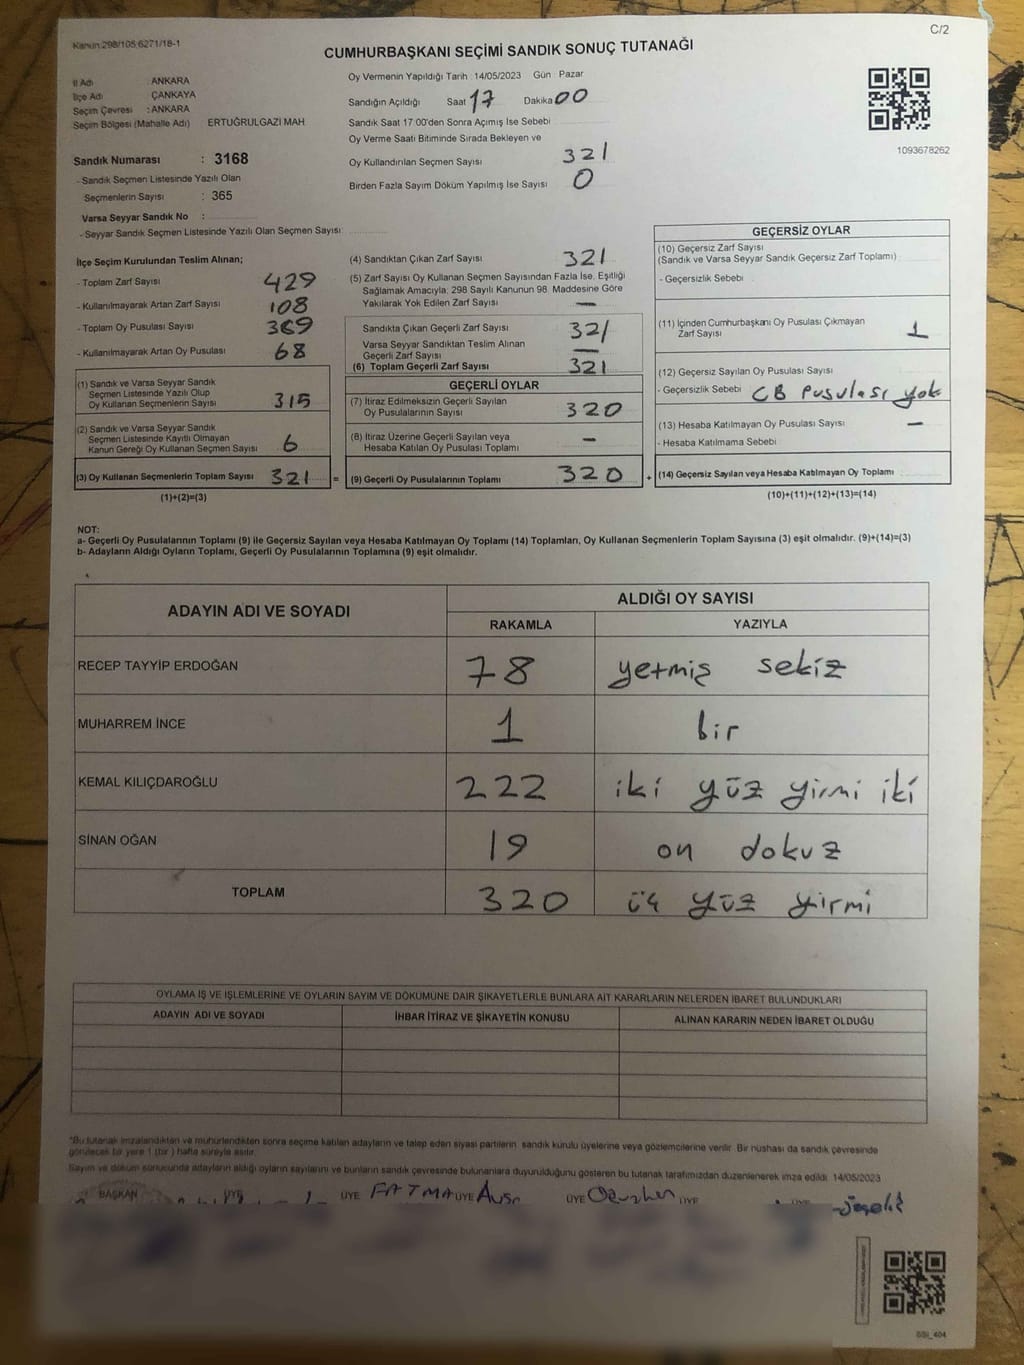 Kanun:298/105;6271/18-1
C/2
CUMHURBAŞKANI SEÇİMİ SANDIK SONUÇ TUTANAĞI
İl Adı : ANKARA
İlçe Adı : ÇANKAYA
Seçim Çevresi : ANKARA
Seçim Bölgesi (Mahalle Adı) ERTUĞRULGAZİ MAH
Sandık Numarası : 3168
- Sandık Seçmen Listesinde Yazılı Olan
Seçmenlerin Sayısı : 365
Varsa Seyyar Sandık No :
- Seyyar Sandık Seçmen Listesinde Yazılı Olan Seçmen Sayısı:
Oy Vermenin Yapıldığı Tarih :14/05/2023 Gün : Pazar
Sandığın Açıldığı Saat 17 Dakika 00
Sandık Saat 17:00'den Sonra Açımış İse Sebebi
Oy Verme Saati Bitiminde Sırada Bekleyen ve
Oy Kullandırılan Seçmen Sayısı 321
Birden Fazla Sayım Döküm Yapılmış İse Sayısı 0
1093678262
İlçe Seçim Kurulundan Teslim Alınan;
- Toplam Zarf Sayısı 429
- Kullanılmayarak Artan Zarf Sayısı 108
- Toplam Oy Pusulası Sayısı 389
- Kullanılmayarak Artan Oy Pusulası 68
(1) Sandık ve Varsa Seyyar Sandık
Seçmen Listesinde Yazılı Olup
Oy Kullanan Seçmenlerin Sayısı 315
(2) Sandık ve Varsa Seyyar Sandık
Seçmen Listesinde Kayıtlı Olmayan
Kanun Gereği Oy Kullanan Seçmen Sayısı 6
(3) Oy Kullanan Seçmenlerin Toplam Sayısı 321 =
(1)+(2)=(3)
(4) Sandıktan Çıkan Zarf Sayısı 321
(5) Zarf Sayısı Oy Kullanan Seçmen Sayısından Fazla İse, Eşitliği
Sağlamak Amacıyla; 298 Sayılı Kanunun 98. Maddesine Göre
Yakılarak Yok Edilen Zarf Sayısı —
Sandıkta Çıkan Geçerli Zarf Sayısı 321
Varsa Seyyar Sandıktan Teslim Alınan
Geçerli Zarf Sayısı —
(6) Toplam Geçerli Zarf Sayısı 321
GEÇERLİ OYLAR
(7) İtiraz Edilmeksizin Geçerli Sayılan
Oy Pusulalarının Sayısı 320
(8) İtiraz Üzerine Geçerli Sayılan veya
Hesaba Katılan Oy Pusulası Toplamı —
(9) Geçerli Oy Pusulalarının Toplamı 320 +
GEÇERSİZ OYLAR
(10) Geçersiz Zarf Sayısı
(Sandık ve Varsa Seyyar Sandık Geçersiz Zarf Toplamı)
- Geçersizlik Sebebi
(11) İçinden Cumhurbaşkanı Oy Pusulası Çıkmayan
Zarf Sayısı 1
(12) Geçersiz Sayılan Oy Pusulası Sayısı
- Geçersizlik Sebebi CB Pusulası yok
(13) Hesaba Katılmayan Oy Pusulası Sayısı —
- Hesaba Katılmama Sebebi
(14) Geçersiz Sayılan veya Hesaba Katılmayan Oy Toplamı
(10)+(11)+(12)+(13)=(14)
NOT:
a- Geçerli Oy Pusulalarının Toplamı (9) ile Geçersiz Sayılan veya Hesaba Katılmayan Oy Toplamı (14) Toplamları, Oy Kullanan Seçmenlerin Toplam Sayısına (3) eşit olmalıdır. (9)+(14)=(3)
b- Adayların Aldığı Oyların Toplamı, Geçerli Oy Pusulalarının Toplamına (9) eşit olmalıdır.
ADAYIN ADI VE SOYADI ALDIĞI OY SAYISI
RAKAMLA YAZIYLA
RECEP TAYYİP ERDOĞAN 78 yetmiş sekiz
MUHARREM İNCE 1 bir
KEMAL KILIÇDAROĞLU 222 iki yüz yirmi iki
SİNAN OĞAN 19 on dokuz
TOPLAM 320 üç yüz yirmi
OYLAMA İŞ VE İŞLEMLERİNE VE OYLARIN SAYIM VE DÖKÜMÜNE DAİR ŞİKAYETLERLE BUNLARA AİT KARARLARIN NELERDEN İBARET BULUNDUKLARI
ADAYIN ADI VE SOYADI İHBAR İTİRAZ VE ŞİKAYETİN KONUSU ALINAN KARARIN NEDEN İBARET OLDUĞU
*Bu tutanak imzalandıktan ve mühürlendikten sonra seçime katılan adayların ve talep eden siyasi partilerin sandık kurulu üyelerine veya gözlemcilerine verilir. Bir nüshası da sandık çevresinde
görülecek bir yere 1 (bir ) hafta süreyle asılır.
Sayım ve döküm sonucunda adayların aldığı oyların sayılarını ve bunların sandık çevresinde bulunanlara duyurulduğunu gösteren bu tutanak tarafımızdan düzenlenerek imza edildi. 14/05/2023
BAŞKAN ÜYE ÜYE FATMA ÜYE ÜYE ÜYE ÜYE
SSI_404